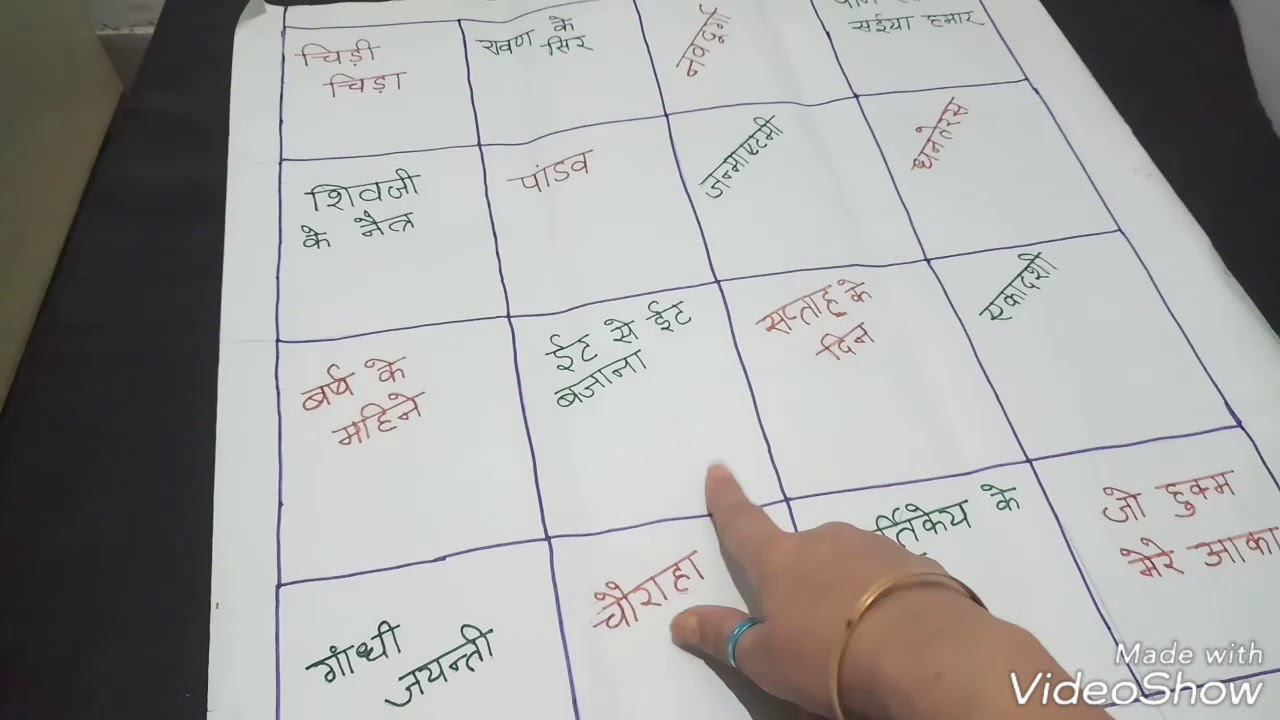 चिड़ी
चिड़ा
रावण के
सिर
नवदुर्गा
सईंया हमार
शिवजी
के नैत्र
पांडव
जन्माष्टमी
धनतेरस
बर्ष के
महिने
ईंट से ईंट
बजाना
सप्ताह के
दिन
एकादशी
गांधी
जयन्ती
चौराहा
र्तिकेय के
जो हुक्म
मेरे आका
Made with
VideoShow